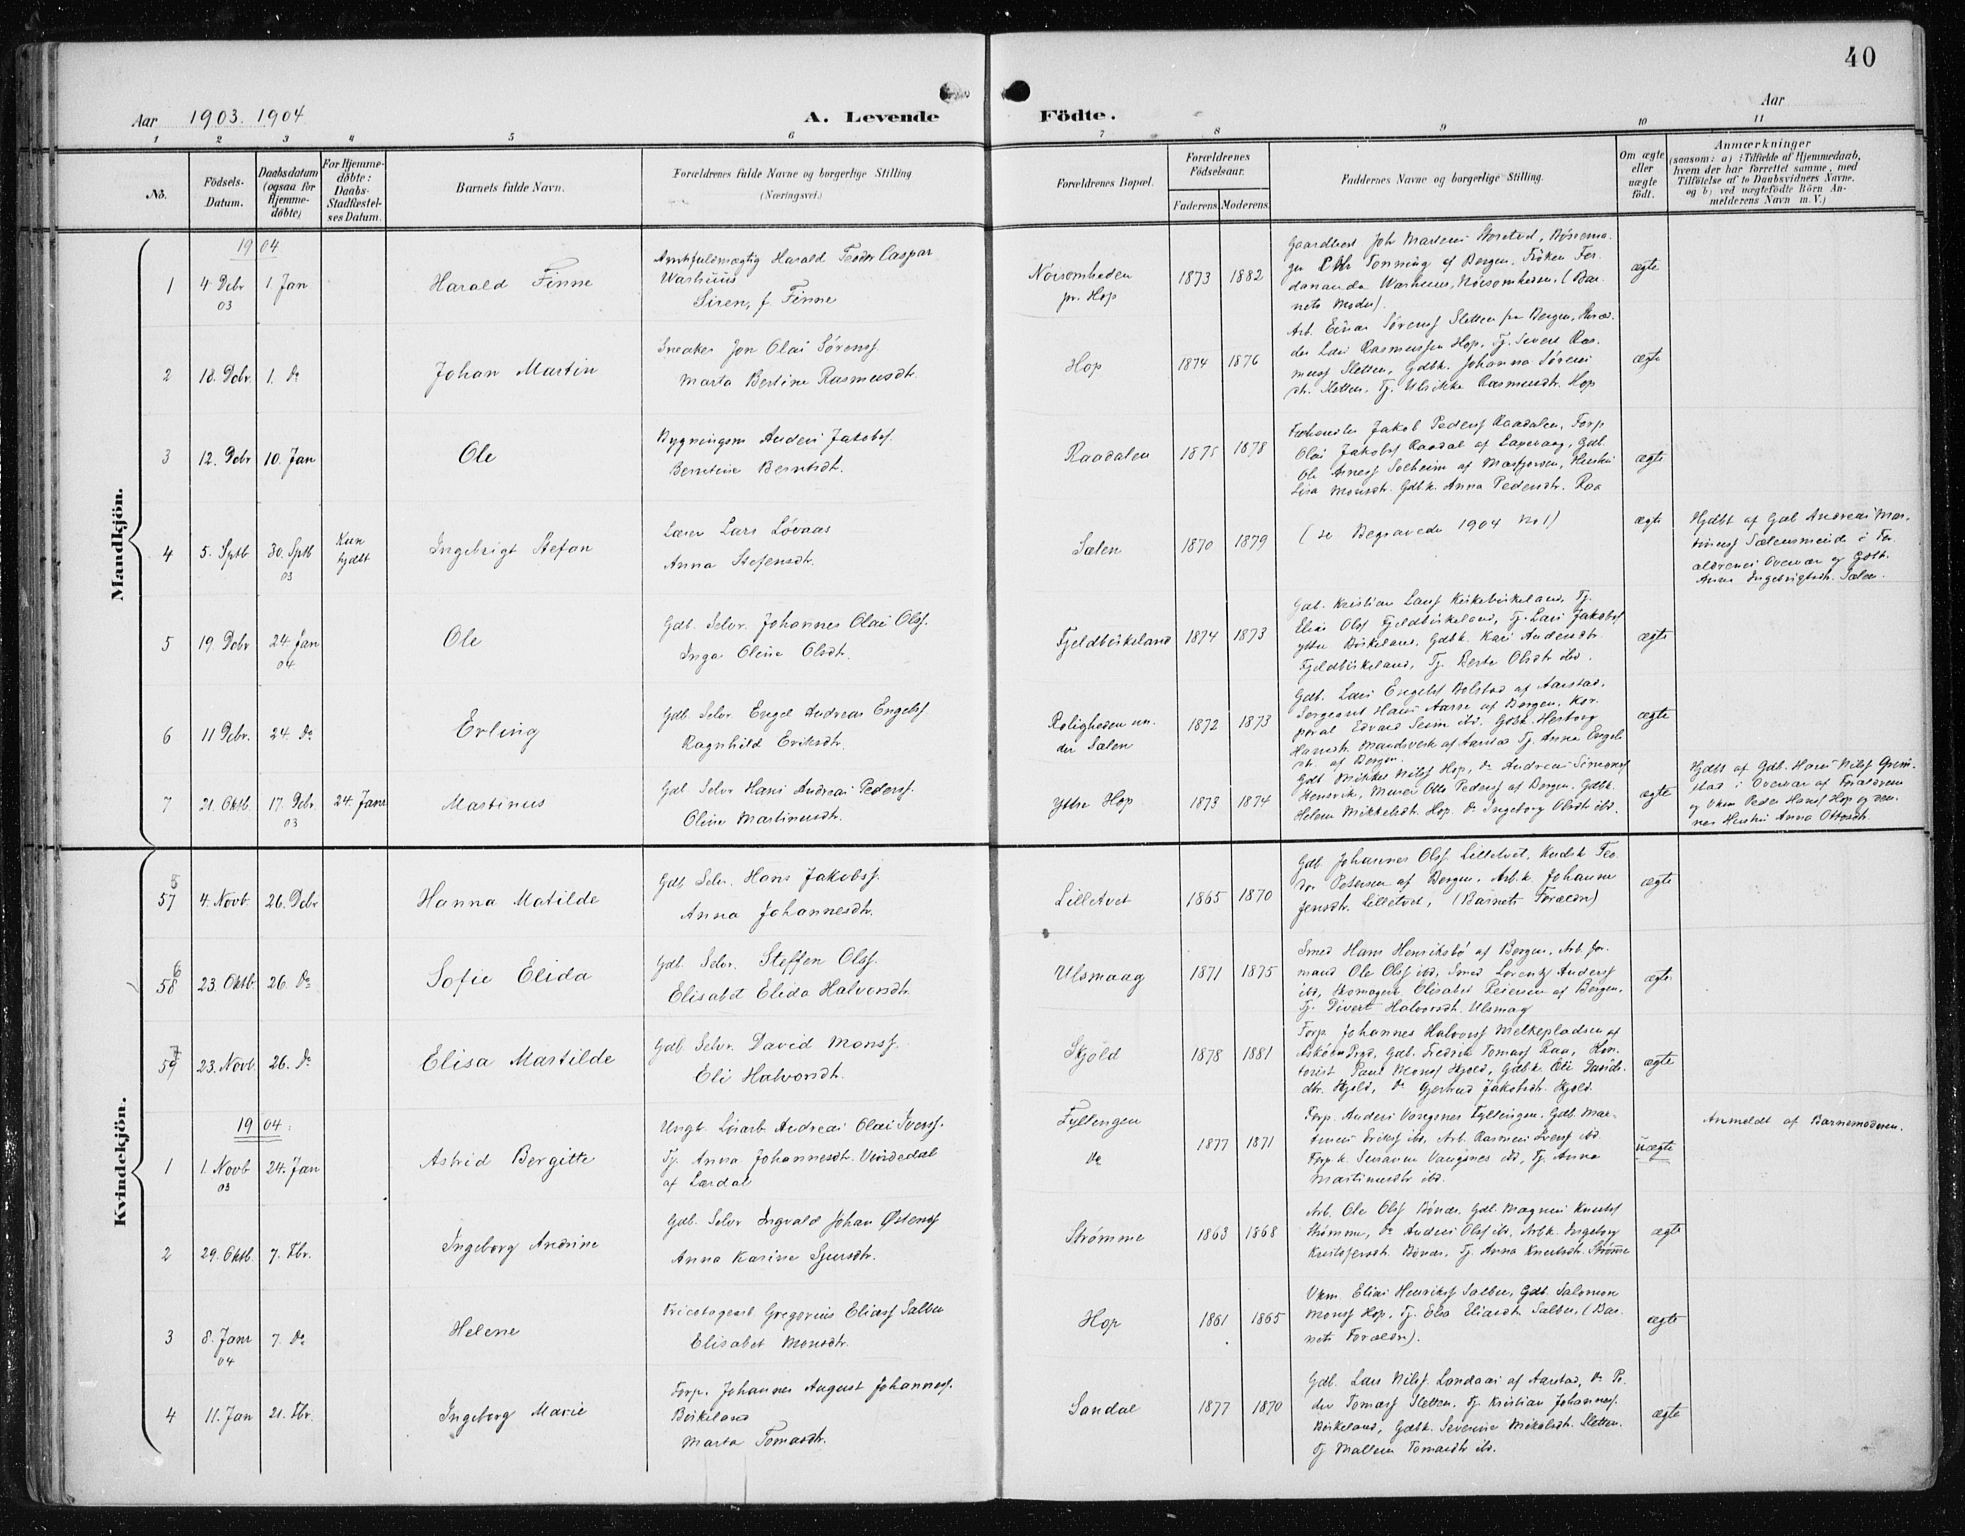 40
Aar 1903. 1904
A. Levende Födte.
Aar
1 2 3 4 5 6 7 8 9 10 11
No.
Födsels-Datum.
Daabsdatum (ogsaa for Hjemmedöbte)
For Hjemmedöbte: Daabs-Stadfæstelses Datum.
Barnets fulde Navn.
Forældrenes fulde Navne og borgerlige Stilling
(Næringsvei.)
Forældrenes Bopæl.
Forældrenes Födselsaar.
Faderens Moderens
Faddernes Navne og borgerlige Stilling.
Om ægte eller uægte födt.
Anmærkninger
(saasom: a) i Tilfælde af Hjemmedaab,
hvem der har forrettet samme, med
Tilföielse af to Daabsvidners Navne.
og b) ved uægtefödte Börn An-
melderens Navn m. V.)
Mandkjön.
1904
1 4 Debr 03 1. Jan Harald Finne
Harald Caspar
Warhuus
Siren, f. Finne
pr. Hop 1873 1882
af Bergen, Frøken
(Bar-
nets Moder).
ægte
2 18. Debr 1. Do Johan Martin
Jon Olai Sørens.
Marta Bertine Rasmusdtr.
Hop 1874 1876
Arb. Einar Sørens Sletten fra Bergen,
Rasmussen Hop, Tj. Sivert Ras-
muss Sletten, Gdbk. Johanna Søren
dtr. Sletten, Tj. Ulrikke Rasmusdtr. Hop
ægte
3 12. Debr 10. Jan Ole
Bygningsm Anders Jakobs.
Berntine Berntsdtr.
Raadalen 1875 1878
Jakob Peders Raadalen, Forp
Olai Jakobs Raadal af
Ole Solheim af Masfjorden,
Lisa Monsdtr. Gdbk. Anna Pedersdtr. Raa
ægte
4 5. Sptb 30. Sptb 03 Kun hjdbt Ingebrigt Stefan
Lars Løvaas
Anna Stefensdtr.
Sælen 1870 1879
(se Begravede 1904 No 1)
ægte
Hjdbt af Gdb Andreas Mar-
i For
ældrenes Overvær og Gdbk.
Anna Ingebrigtsdtr. Sælen.
5 19. Debr 24. Jan 04 Ole
Gdb. Selvr. Johannes Olai Ols.
Inga Oline Olsdtr.
Fjeldbirkeland 1874 1873
Gdb. Kristian Lars Kirkebirkeland, Tj.
Elias Ols Fjeldbirkeland, Tj. Lars Jakobs
ytre Birkeland, Gdbk. Kari Andersdtr.
Fjeldbirkeland, Tj. Berte Olsdtr ibd.
ægte
6 11 Debr. 24. Do Erling
Gdb. Selvr Engel Andreas Engels
Ragnhild Eriksdtr.
Roligheden un-
der Sælen 1872 1873
Gdb. Lars Engels Bolstad af Aarstad,
Sergeant Hans Aarse af Bergen, Kor-
poral Edvard Seim ibd. Gdbk. Herborg
Hansdtr. Mandsverk af Aarstad Tj. Anna Engels
dtr. af Bergen.
ægte
7 21. Oktb. 17. Debr. 03 24. Jan Martinus
Gdb Selvr Hans Andreas Peders.
Oline Martinusdtr.
Ytre Hop 1873 1874
Gdb Mikkel Nils Hop, Do Andreas Simons
Murer Otto Peders af Bergen, Gdbk.
Helene Mikkelsdtr. Hop. Do Ingeborg Olsdtr ibd.
ægte
Hjdbt af Gdb. Hans Nils Grim-
stad i Overvær af Forældrene
og Ukm Peder Hans Hop og den-
nes Hustru Anna Ottosdtr.
Kvindekjön.
57 5 4. Novb. 26. Debr Hanna Matilde
Gdb Selvr. Hans Jakobs.
Anna Johannesdtr.
Lilletvet 1865 1870
Gdb. Johannes Ols. Lilletvet, Kudsk Teo-
dor Petersen af Bergen, Arb.k. Johanne
Jensdtr. Lilletvet, (Barnets Forældr)
ægte
58 6 23. Oktb. 26. Do Sofie Elida
Gdb. Selvr. Steffen Ols.
Elisabet Elida Halvorsdtr.
Ulsmaag 1871 1875
Smed Hans Henriksbø af Bergen, Arb.for-
mand Ole Ols ibd, Smed Lorentz Anders
ibd, Elisabet af Bergen,
Tj. Sivert Halvorsdtr. Ulsmag
ægte
59 7 23. Novb. 26. Do Elisa Martilde
Gdb. Selvr. David Mons.
Eli Halvorsdtr.
Skjold 1878 1881
Forp. Johannes Halvors Melkepladsen af
Gdb. Fredrik Tomas Raa, Kon-
torist Paul Mons Skjold, Gdbk. Eli Davids-
dtr. Skjold, Do Gjertrud Jakobsdtr. Skjold.
ægte
1904.
1 1. Novb 03 24. Jan Astrid Bergitte
Ungk. Løsarb Andreas Olai Ivers.
Tj. Anna Johannesdtr. Vindedal
af Lærdal
Fyllingen
Do 1877 1871
Forp. Anders Vangsnes Fyllingen, Gdb. Mar-
tinus Eriks ibd, Arb. Rasmus Ivers ibd
Forp.k. Susanne Vangsnes ibd, Tj. Anna
Martinusdtr ibd.
uægte
Anmeldt af Barnemoderen.
2 29. Oktb. 7. Fbr. Ingeborg Andrine
Gdb. Selvr Ingvald Johan Østens
Anna Karine Sjursdtr.
Strømme 1863 1868
Arb. Ole Ols Bønes. Gdb. Magnus Knuts
Strømme, Do Anders Ols ibd, Arbk. Ingeborg
Kristofersdtr. Bønes, Tj. Anna Knutsdtr. Strømme
ægte
3 8. Janr 04 7. Do Helene
Tricotagearb Gregorius Elias Sælen
Elisabet Monsdtr.
Hop 1861 1865
Ukm. Elias Henriks Sælen, Gdb. Salomon
Mons Hop, Tj. Elea Eliasdtr Sælen, (Bar-
nets Forældr).
ægte
4 11. Jan 21. Fbr. Ingeborg Marie
Forp. Johannes August Johannes.
Birkeland
Marta Tomasdtr.
Sandal 1877 1870
Gdb. Lars Nils. Landaas af Aarstad, Do Pe-
der Tomas Sletten, Tj Kristian Johannes.
Birkeland, Gdbk. Severine Mikkelsdtr. Sletten.
Tj Malene Tomasdtr ibd.
ægte